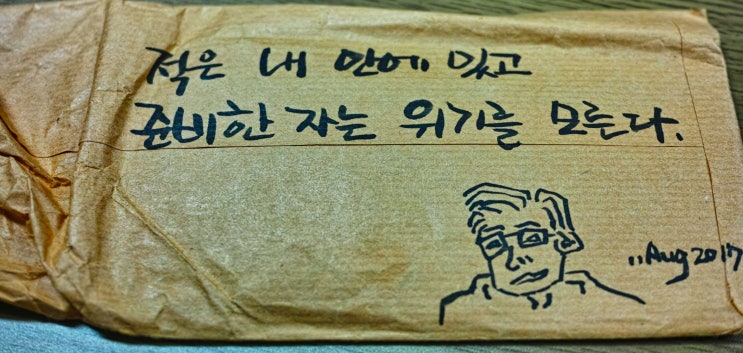 적은 내 안에 있고
준비한 자는 위기를 모른다.
11Aug2017